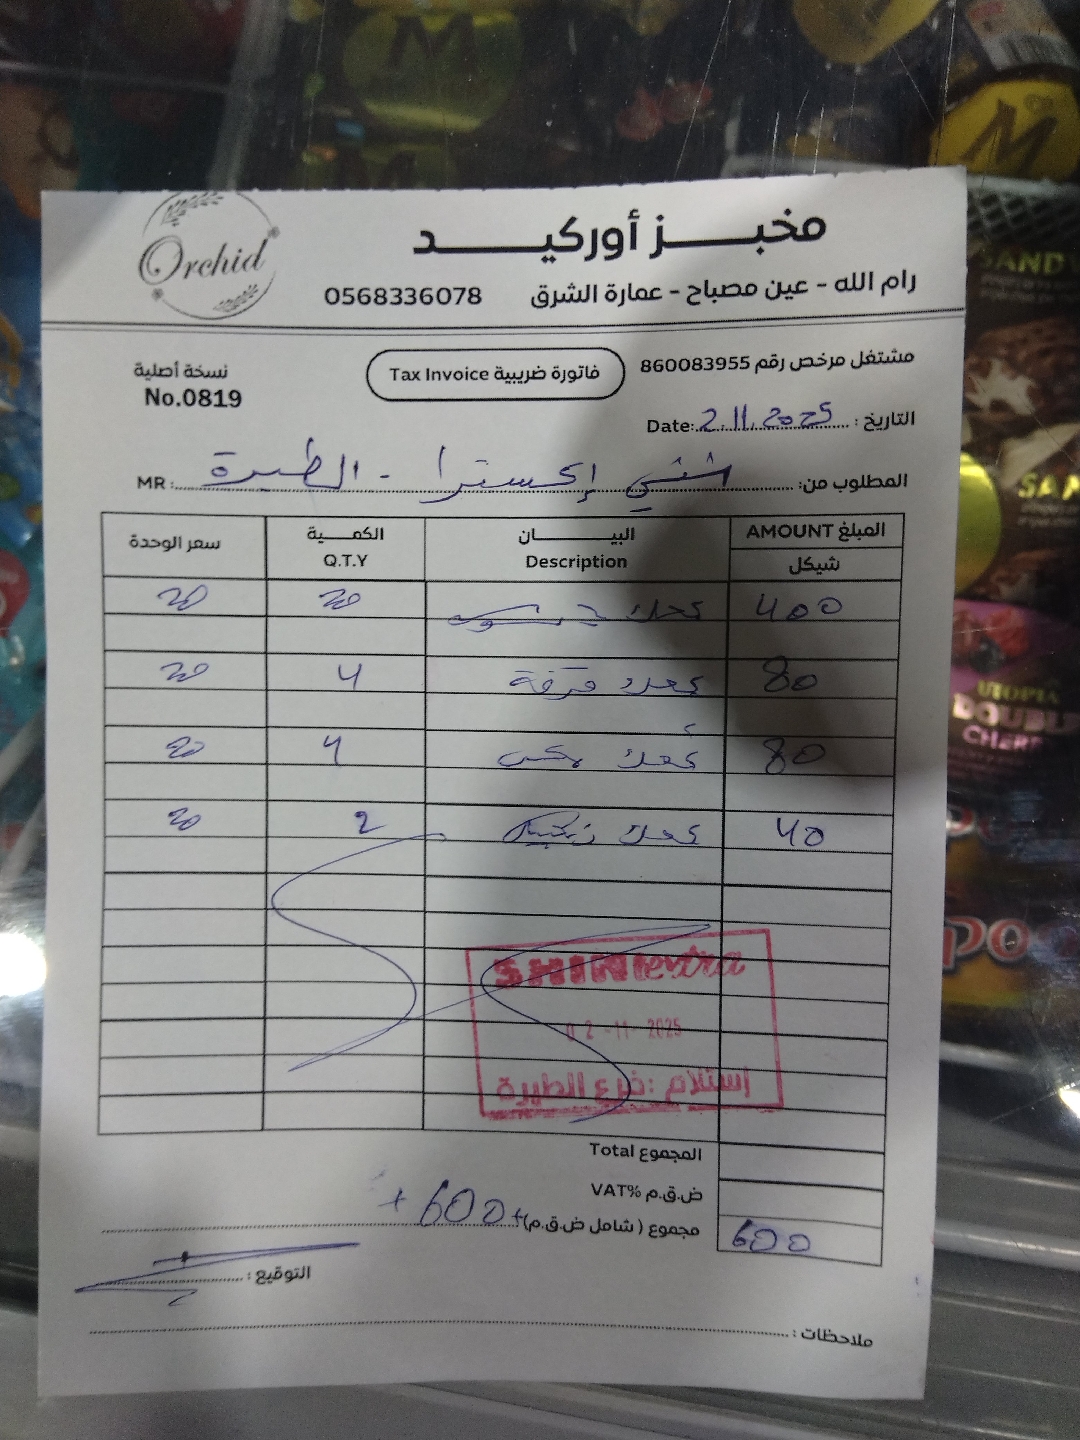 Orchid
مخبز أوركيد
رام الله - عين مصباح - عمارة الشرق 0568336078
مشتغل مرخص رقم 860083955
فاتورة ضريبية Tax Invoice
نسخة أصلية
No.0819
التاريخ : Date: 2.11.2025
المطلوب من: شني إكسترا - الطيرة MR:
المبلغ AMOUNT البيـــان الكمـــية سعر الوحدة
شيكل Description Q.T.Y
400 كعك 20 20
80 كعك قرفة 4 20
80 كعك مكس 4 20
40 كعك 2 20
SHINIextra
02-11-2025
إستلام : فرع الطيرة
المجموع Total
ض.ق.م VAT%
مجموع ( شامل ض.ق.م) 600 600
التوقيع :
ملاحظات :
M
M
SAND
SA
UTOPIA
DOUBLE
CHERR